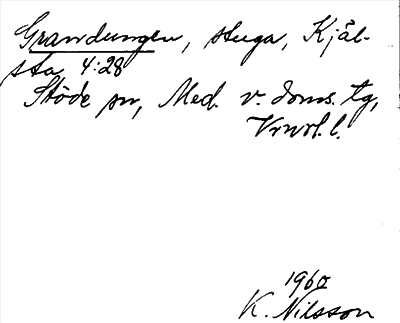 Grandungen, stuga, Kjäl-
sta 4:28
Stöde sn, Med. v. doms. tg,
Vnrl. l.
1960
K. Nilsson